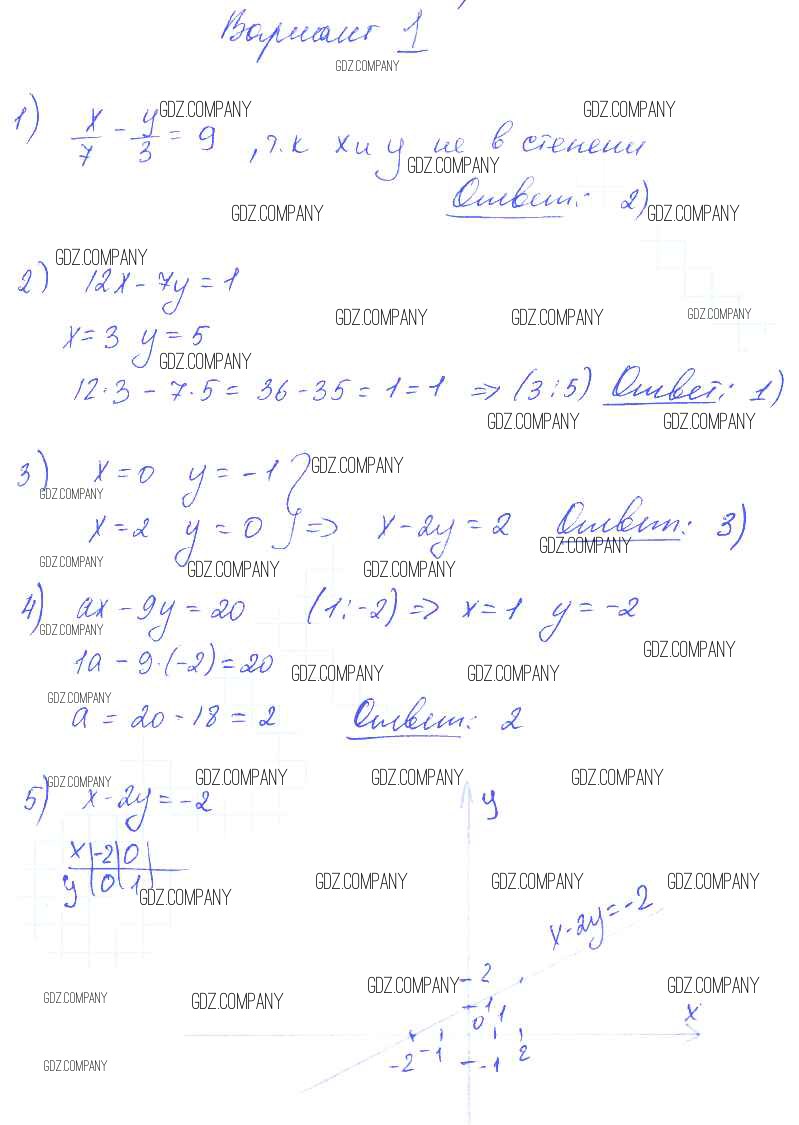 Вариант 1
GDZ.COMPANY
1) x/7 - y/3 = 9 , т.к х и у не в степени
GDZ.COMPANY GDZ.COMPANY
GDZ.COMPANY
Ответ: 2)
GDZ.COMPANY GDZ.COMPANY
GDZ.COMPANY
2) 12x - 7y = 1
GDZ.COMPANY GDZ.COMPANY GDZ.COMPANY
x = 3 y = 5
GDZ.COMPANY
12·3 - 7·5 = 36 - 35 = 1 = 1 => (3;5) Ответ: 1)
GDZ.COMPANY GDZ.COMPANY
3) x = 0 y = -1 }
GDZ.COMPANY
GDZ.COMPANY
x = 2 y = 0 } => x - 2y = 2 Ответ: 3)
GDZ.COMPANY
GDZ.COMPANY GDZ.COMPANY GDZ.COMPANY
4) ax - 9y = 20 (1;-2) => x = 1 y = -2
GDZ.COMPANY GDZ.COMPANY
1a - 9·(-2) = 20
GDZ.COMPANY GDZ.COMPANY
GDZ.COMPANY
a = 20 - 18 = 2 Ответ: 2
GDZ.COMPANY GDZ.COMPANY GDZ.COMPANY GDZ.COMPANY
5) x - 2y = -2
y
x | -2 | 0 |
y | 0 | 1 |
GDZ.COMPANY GDZ.COMPANY GDZ.COMPANY GDZ.COMPANY
x-2y=-2
2
GDZ.COMPANY GDZ.COMPANY
GDZ.COMPANY GDZ.COMPANY
1
0 1
x
-2 -1 -1 2
GDZ.COMPANY